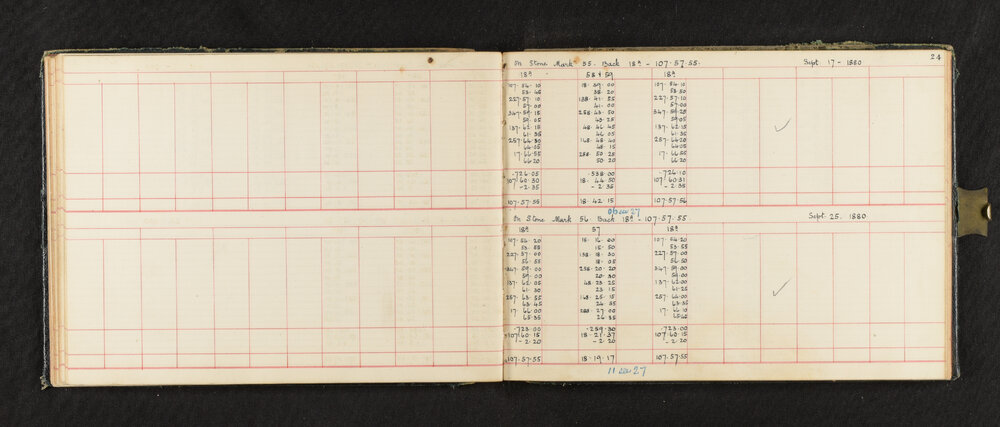 24
On Stone Mark 55. Back 18ª - 107·57·55. Sept. 17 - 1880
18ª 58 & 59 18ª
107·54·10 18·39·00 107·54·10
53·45 38·20 53·50
227·57·10 138·41·55 227·57·10
57·00 41·00 57·00
347·59·15 258·43·50 347·59·25
59·05 43·25 59·05
137·62·15 48·46·45 137·62·15
61·35 46·05 61·35
257·64·30 168·48·40 257·64·20
64·05 48·15 64·05
17·66·55 288·50·25 17·66·55
66·20 50·20 66·20
·726·05 ·538·00 ·726·10
107·60·30 18·44·50 107·60·31
-2·35 -2·35 -2·35
107·57·55 18·42·15 107·57·56
27
On Stone Mark 56. Back 18ª - 107·57·55. Sept. 25. 1880
18ª 57 18ª
107·54·20 18·16·00 107·54·20
53·55 15·50 53·55
227·57·00 138·18·30 227·57·00
56·55 18·05 56·50
347·59·00 258·20·20 347·59·00
59·00 20·30 59·00
137·62·05 48·23·25 137·62·00
61·30 23·15 61·25
257·63·55 168·25·15 257·64·00
63·45 24·55 63·35
17·66·00 288·27·00 17·66·10
65·35 26·35 65·45
·723·00 ·259·30 ·723·00
107·60·15 18·21·37 107·60·15
-2·20 -2·20 -2·20
107·57·55 18·19·17 107·57·55
11 27